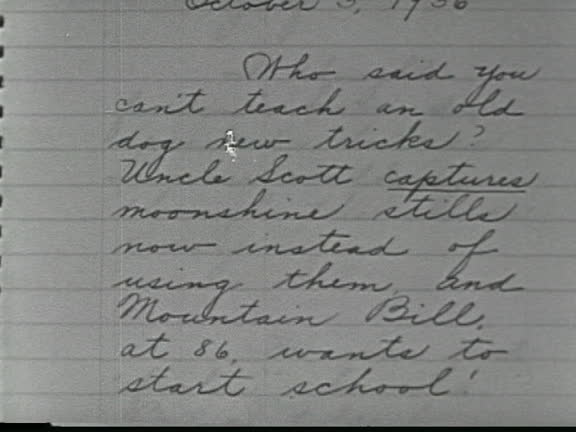 October 3, 1936
Who said you
can't teach an old
dog new tricks?
Uncle Scott captures
moonshine stills
now instead of
using them, and
Mountain Bill,
at 86, wants to
start school!